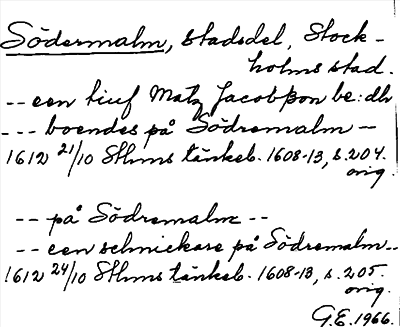 Södermalm, stadsdel, Stock-
holms stad.
-- een tiuf Matz Jacobßon be:dh
--- boendes på Södremalm --
1612 21/10 Sthms tänkeb. 1608-13, s. 204.
orig.
-- på Södremalm --
-- een schnickare på Södremalm --
1612 24/10 Sthms tänkeb. 1608-13, s. 205.
orig.
G.E. 1966.